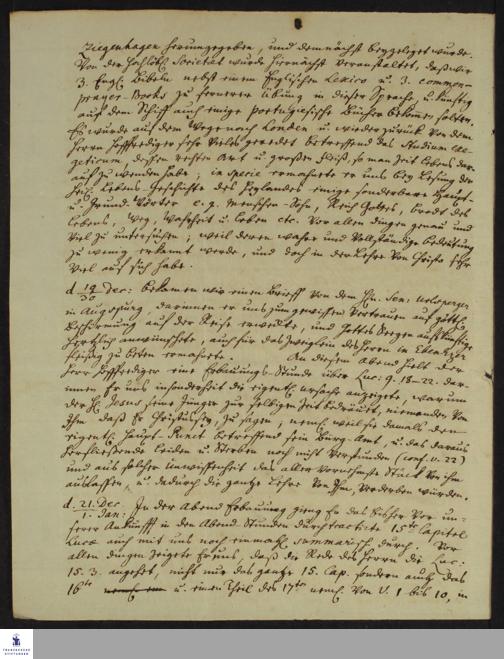 Ziegenhagen herausgegeben, und demnächst beygeleget wurde.
Von der Hochlöbl. Societät wurde hiernächst veranstaltet, daß wir
3. Engl. Bibeln nebst einem Englischen Lexico u. 3. common-
prayer-Books zu fernerer Übung in dieser Sprache, u. künftig
auf dem Schiff auch einige portugiesische Bücher bekomen solten.
Es wurde auf dem Wege nach London u. wieder zurück von dem
Herrn Hoffprediger sehr vieles geredet betreffend das Studium Exe-
geticum, dessen rechten Art u. großen Fleiß, so man Zeit Lebens dar-
auf zu wenden habe; in specie ermahnte er uns bey Lesung der
Lebens-Geschichte des Heylandes einige sonderbare Haupt-
u. Grund-Wörter e. g. Menschen-Sohn, Reich Gottes, Brodt des
Lebens, Weg, Wahrheit u. Leben etc. vor allen dingen genau und
viel zu untersuchen; weil deren wahre und vollständige bedeutung
zu wenig erkannt werde, und doch in der Lehre von Christo sehr
viel auf sich habe.
d. 19/30 Dec: bekamen wir einen Brieff von dem Hn. Sen. Urlsperger
in Augspurg, darinnen er uns zum gewissen Vertrauen auf göttl.
Beschirmung auf der Reise erweckte, und Gottes Seegen
hertzlich anwünschte, auch für das Zion des Herrn in Ebenezer
fleißig zu beten ermahnte. An diesem Abend hielt der
Herr Hoffprediger eine Erbauungs-Stunde über Luc: 9. 18-22. dar-
innen Er uns insonderheit die eigentl. ursache anzeigte, warum
der H. Jesus seine Jünger zur selbigen Zeit bedräuet, niemanden von
Ihm, daß Er Christus sey, zu sagen; neml. weil sie damals den
eigentl. Haupt-Punct betreffend sein Bürg-Amt, u. das daraus
herfließende Leiden u. Sterben noch nicht verstünden (conf. v. 22)
und aus solcher Unwissenheit das aller vornehmste Stück von ihm
auslassen, u. dadurch die gantze Lehre von Ihm, verderben würden.
d. 21. Dec./1. Jan: In der Abend Erbauung gieng Er das bisher vor un-
serer Ankunfft in den Abend-Stunden durchtractirte 15te Capitel
Lucæ auch mit uns noch einmahl summarisch durch. Vor
allen dingen zeigete Er uns, daß die Rede des Herrn die Luc:
15. 3. angehet, nicht nur das gantze 15. Cap. sondern auch das
16te u. einen Theil des 17ten neml. von v. 1 bis 10, in
FRANCKESCHE
STIFTUNGEN